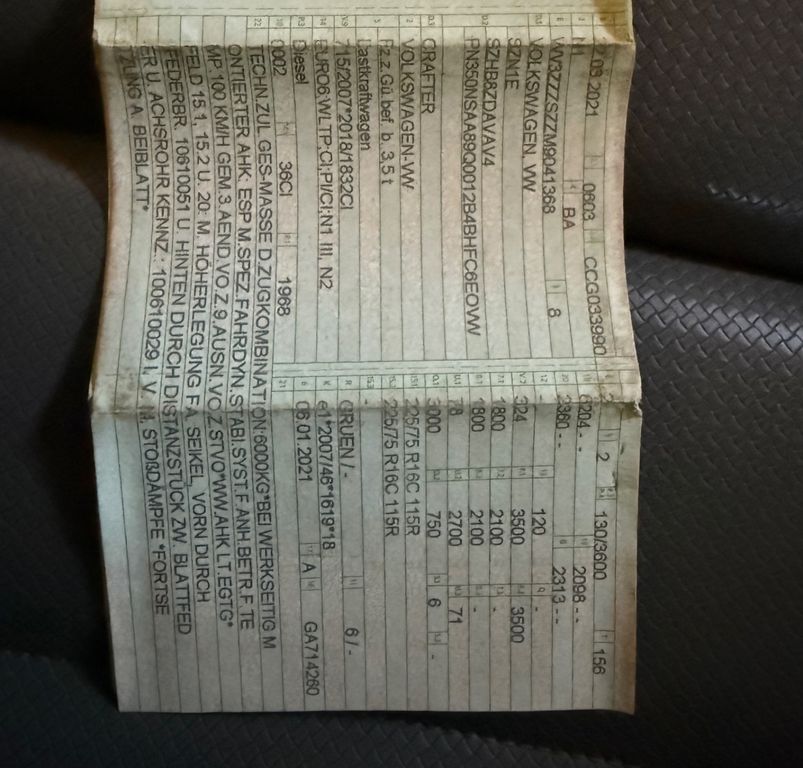 .03.2021 0603 CCG033990
N1 BA
WV3ZZZSZZM9041368 8
VOLKSWAGEN, VW
SZN1E
SZHB8ZDAVAV4
PN350NSAA89Q0012B4BHFC6EOVW
CRAFTER
VOLKSWAGEN-VW
Fz.z.Gü.bef. b. 3,5 t
Lastkraftwagen
715/2007*2018/1832CI
EURO6;WLTP;CI;PI/CI;N1 III, N2
Diesel
0002 36CI 1968
2 130/3600 156
6204 - - 2098 - -
2360 - - 2313 - -
- 120 -
324 3500 3500
1800 2100 -
1800 2100 -
78 2700 71
3000 750 6 -
225/75 R16C 115R
225/75 R16C 115R
-
GRUEN / - 6 / -
e1*2007/46*1619*18
06.01.2021 A GA714260
TECHN.ZUL GES-MASSE D.ZUGKOMBINATION:6000KG*BEI WERKSEITIG M
ONTIERTER AHK: ESP M.SPEZ.FAHRDYN.STABI.SYST.F.ANH.BETR.F.TE
MP.100 KM/H GEM.3.AEND.VO.Z.9.AUSN.VO.Z.STVO*WW.AHK LT.EGTG*
FELD 15.1, 15.2 U. 20: M. HÖHERLEGUNG FA. SEIKEL, VORN DURCH
FEDERBR. 10610051 U. HINTEN DURCH DISTANZSTÜCK ZW. BLATTFED
ER U. ACHSROHR KENNZ.: 100610029 I, V. M. STOßDÄMPFE *FORTSE
TZUNG A. BEIBLATT*